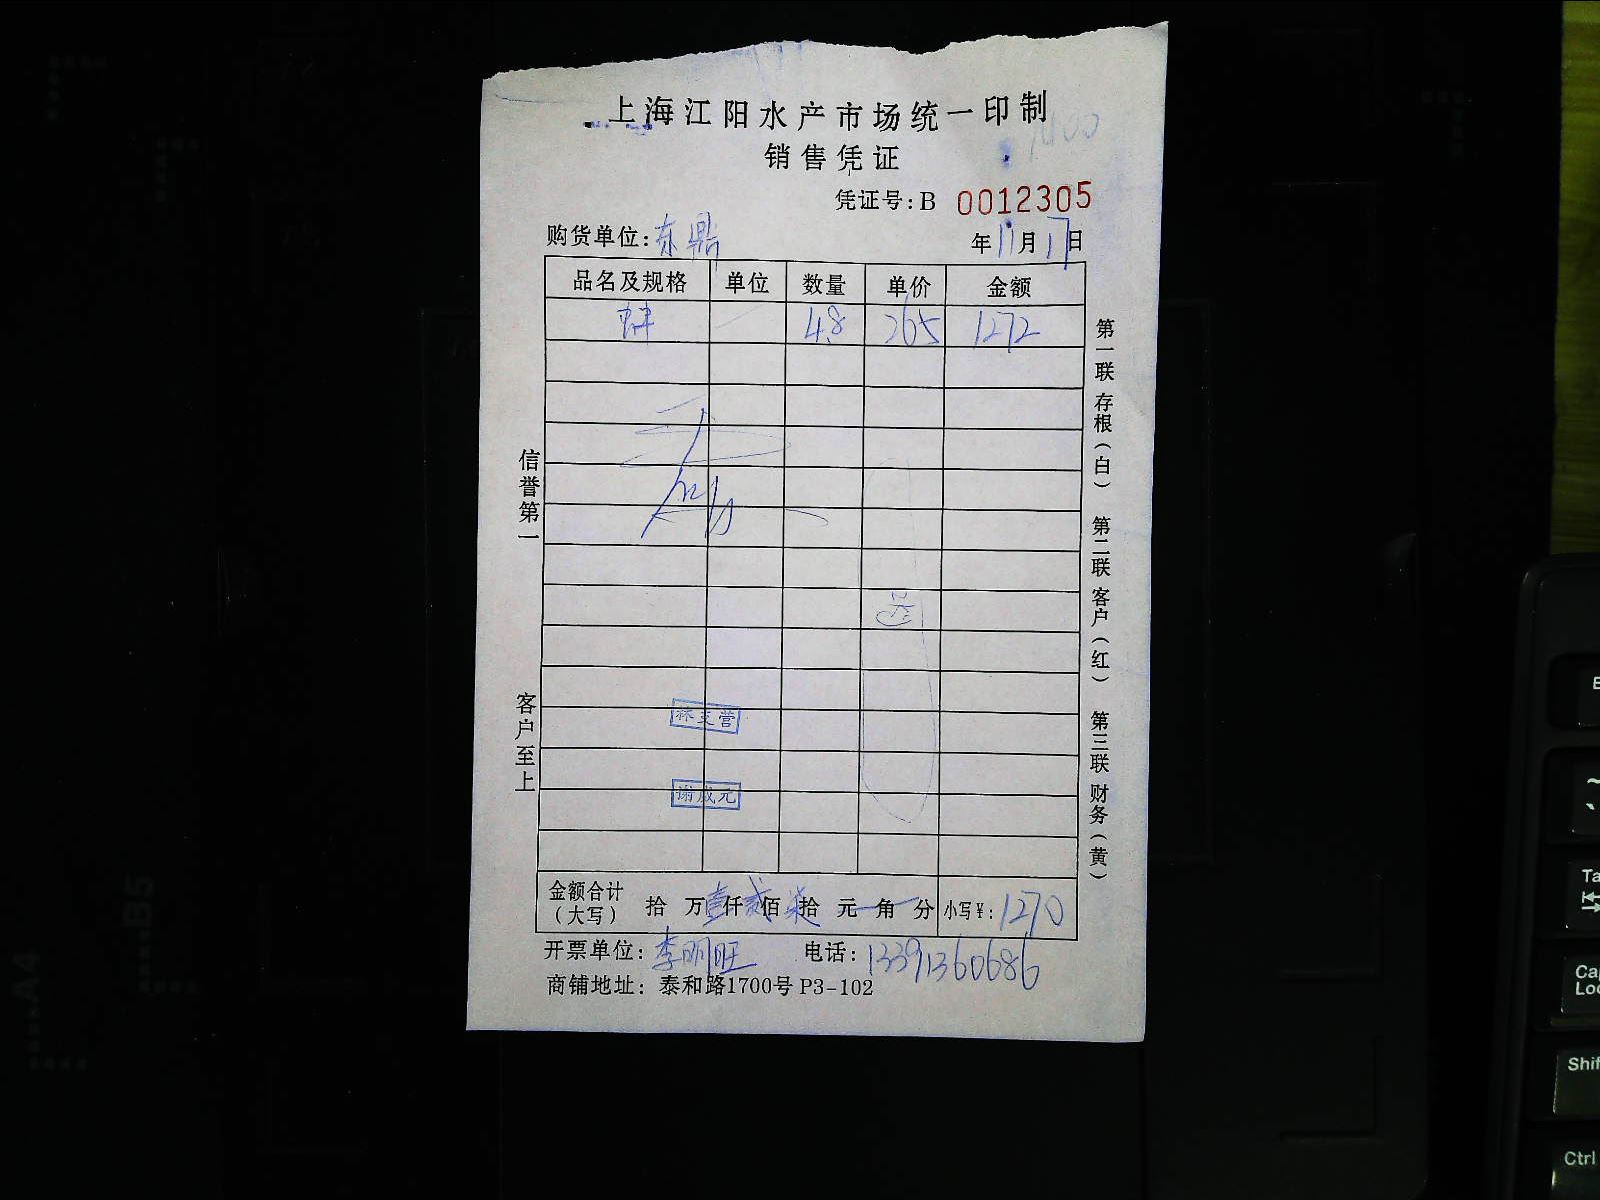 上海江阳水产市场统一印制
销售凭证
凭证号:B 0012305
购货单位:东鼎 年11月17日
品名及规格 单位 数量 单价 金额
4.8 265 1272
送
信誉第一
客户至上
第一联 存根(白) 第二联 客户(红) 第三联 财务(黄)
金额合计(大写) 拾 万壹仟贰佰柒拾 元 角 分 小写¥:1270
开票单位:李明旺 电话:13391360686
商铺地址:泰和路1700号P3-102